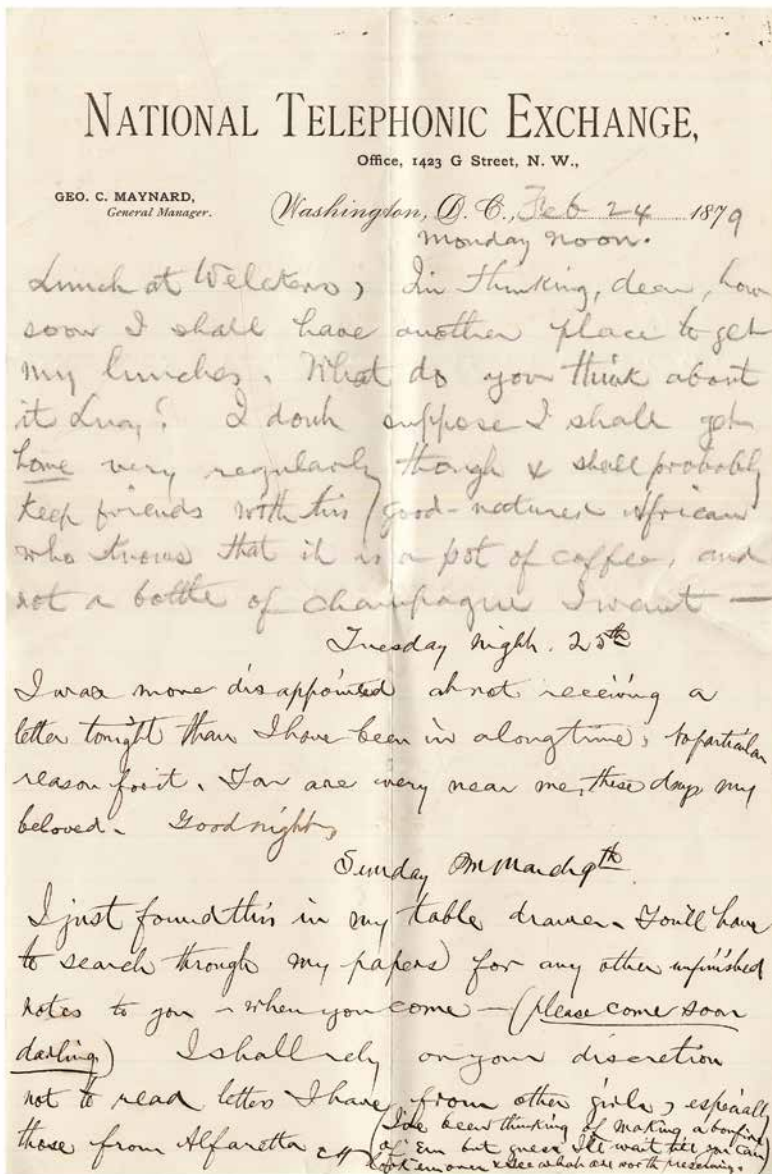 NATIONAL TELEPHONIC EXCHANGE,
Office, 1423 G Street, N. W.,
GEO. C. MAYNARD,
General Manager.
Washington, D. C., Feb 24 1879
Monday noon.
Lunch at Welckers, I'm thinking, dear, how
soon I shall have another place to get
my lunches. What do you think about
it ? I dont suppose I shall get
home very regularly though & shall probably
keep friends with this good-natured African
who knows that it is a pot of coffee, and
not a bottle of champagne I want —
Tuesday night. 25th
I was more disappointed at not receiving a
letter tonight than I have been in a long time, No particular
reason for it. You are very near me, these days my
beloved. Good night,
Sunday PM March 9th
I just found this in my table drawer. You'll have
to search through my papers for any other unfinished
notes to you – when you come – (please come soon
darling) I shall rely on your discretion
not to read letters I have from other girls, especially
those from Alfaretta
(I've been thinking of making a bonfire
of 'em but guess I'll wait till you can
look 'em over & see what are worth preserving.)